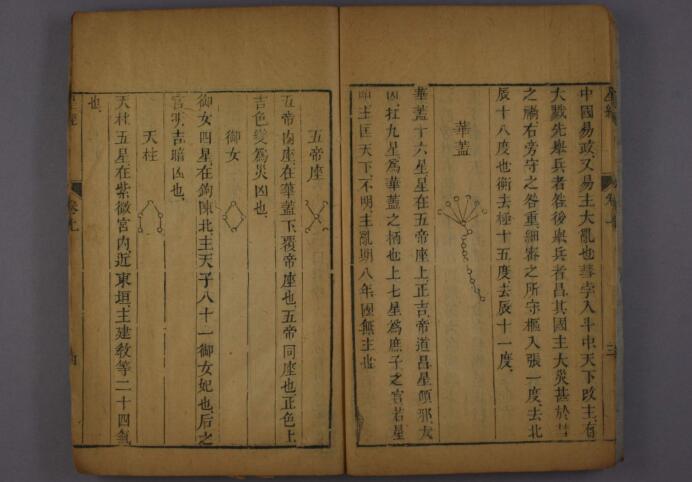 星經
中國易政又易主大亂也彗孛入斗中天下改主有
大戮先舉兵者咎後舉兵者昌其國主大災甚於彗
之禍右旁守之咎重細審之所守樞入張一度去北
辰十八度也衡去極十五度去辰十一度
華蓋
華蓋十六星星在五帝座上正吉帝道昌星傾邪大
凶扛九星為華蓋之柄也上七星為庶子之官若星
明主匡天下不明主亂期八年國無主也
五帝座
五帝內座在華蓋下覆帝座也五帝同座也正色上
吉色變為災凶也
御女
御女四星在鉤陳北主天子八十一御女妃也后之
官明吉暗凶也
天柱
天柱五星在紫微宮內近東垣主建敎等二十四氣
也
星經